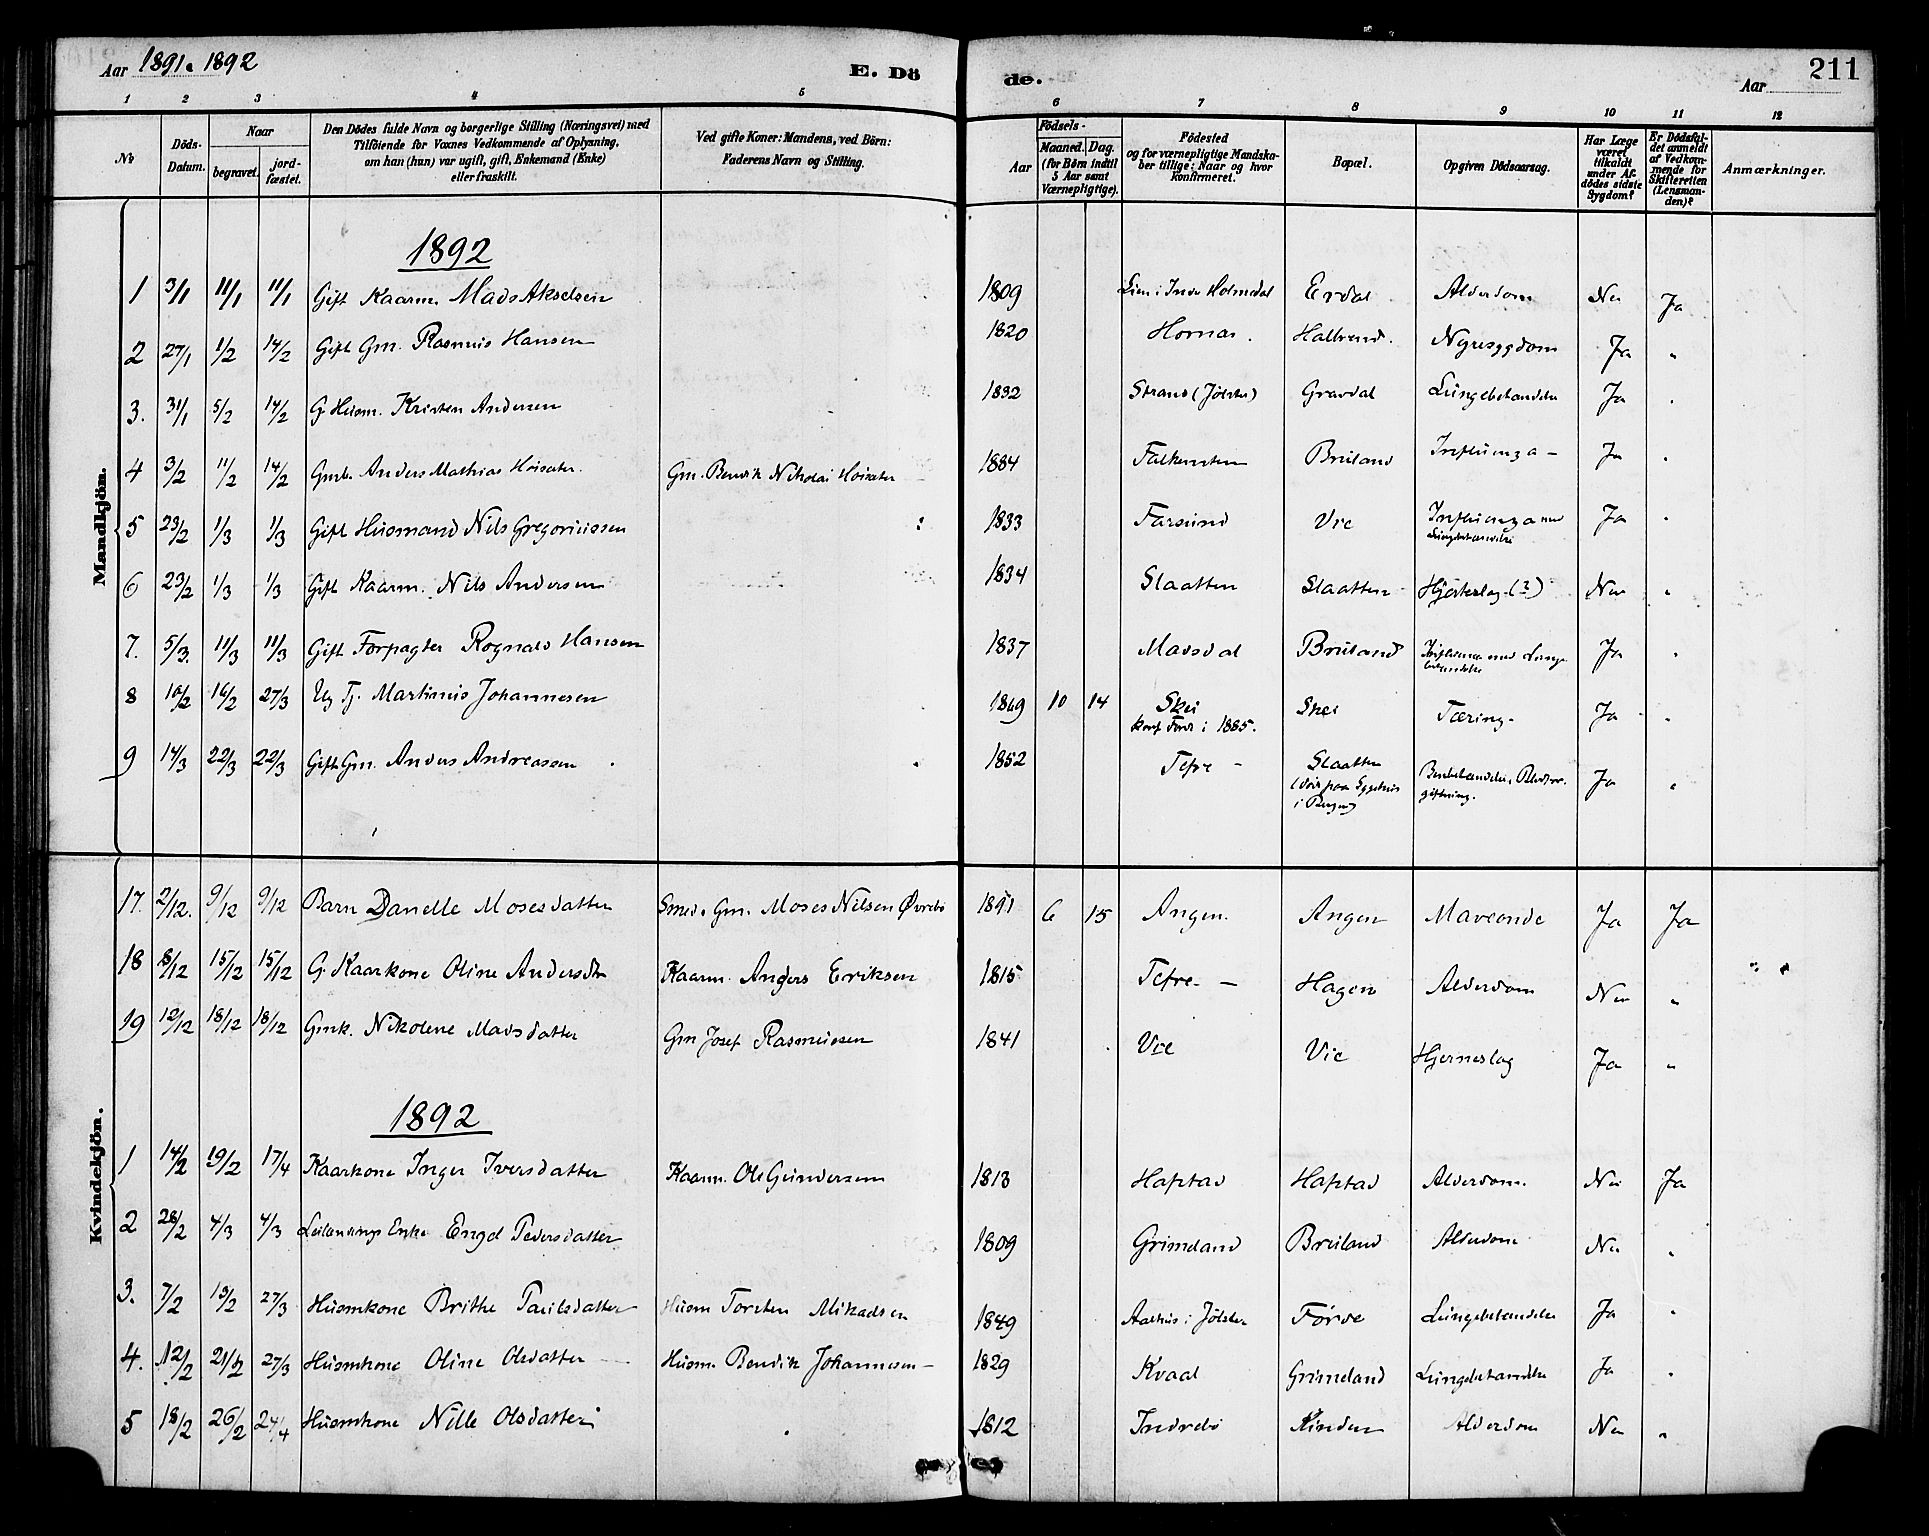 Aar 1891. 1892
E. Dö de.
Aar
211
1 2 3 4 5 6 7 8 9 10 11 12
No
Döds-Datum.
Naar
begravet.
jord-fæstet.
Den Dödes fulde Navn og borgerlige Stilling (Næringsvei) med
Tilföiende for Voxnes Vedkommende af Oplysning,
om han (hun) var ugift, gift, Enkemand (Enke)
eller fraskilt.
Ved gifte Koner: Mandens, ved Börn:
Faderens Navn og Stilling.
Födsels-
Aar
Maaned. Dag.
(for Börn indtil
5 Aar samt
Værnepligtige).
Födested
og for værnepligtige Mandska-
ber tillige: Naar og hvor
konfirmeret.
Bopæl.
Opgiven Dödsaarsag.
Har Læge
været
tilkaldt
under Af-
dödes sidste
Sygdom?
Er Dödsfal-
det anmeldt
af Vedkom-
mende for
Skifteretten
(Lensman-
den)?
Anmærkninger.
Mandkjön.
1892
1 3/1 11/1 11/1 Gift Kaarm. Mads Akselsen 1809 Lien i Indr Holmedal Erdal Alderdom Nei Ja
2 27/1 1/2 14/2 Gift Gm. Rasmus Hansen 1820 Hornas. Halbrend. Nyresygdom Ja "
3. 31/1 5/2 14/2 G. Husm. Kristen Andersen 1832 Strand (Jölster) Gravdal Lungebetændelse Ja "
4 3/2 11/2 14/2 Gmb. Anders Mathias Höisæter. Gm. Bendik Nikolai Höisæter 1884 Falkensten Bruland Influenza - Ja "
5 23/2 1/3 1/3 Gift Husmand Nils Gregoriussen 1833 Farsund Vie Influenza med Lungebetændelse Ja "
6 23/2 1/3 1/3 Gift Kaarm. Nils Andersen 1834 Slaatten Slaatten Hjerteslag (?) Nei "
7. 5/3. 11/3 11/3 Gift Forpagter Rognald Hansen 1837 Madsdal Bruland Influenza med Lungebetændelse Ja "
8 10/2 16/2 27/3 Ug Tj. Martinus Johannesen 1869 10 14 Skei konf Förde i 1885. Skei Tæring - Ja "
9 14/3 22/3 22/3 Gift Gm. Anders Andreassen 1852 Tefre - Slaatten Ja "
Kvindekjön.
17. 2/12. 9/12 9/12 Barn Danelle Mosesdatter Smed. Gm. Moses Nilsen Övrebö 1891 6 15 Angen. Angen Maveonde Ja Ja
18 8/12 15/12 15/12 G. Kaarkone Oline Andersdtr Kaarm. Anders Eriksen 1815 Tefre - Hagen Alderdom Nei "
19 12/12 18/12 18/12 Gmk. Nikoline Madsdatter Gm Josef Rasmussen 1841 Vie Vie Hjerneslag Ja "
1892
1 14/2 19/2 17/4 Kaarkone Inger Iversdatter Kaarm. Ole Gundersen 1813 Hafstad Hafstad Alderdom. Nei Ja
2 28/2 4/3 4/3 Leilendings Enke Engel Pedersdatter 1809 Grimeland Bruland Alderdom Nei "
3. 7/2 13/2 27/3 Husmkone Brithe Paulsdatter Husm Torsten Mikadsen 1849 Aarhus i Jölster Förde Lungebetændelse Ja "
4. 12/2 21/2 27/3 Husmkone Oline Olsdatter Husm. Bendik Johannesen - 1829 Kvaal Grimeland Lungebetændelse Ja "
5 18/2 26/2 24/4 Husmkone Nille Olsdatter 1812 Indrebö Kinden Alderdom Nei "